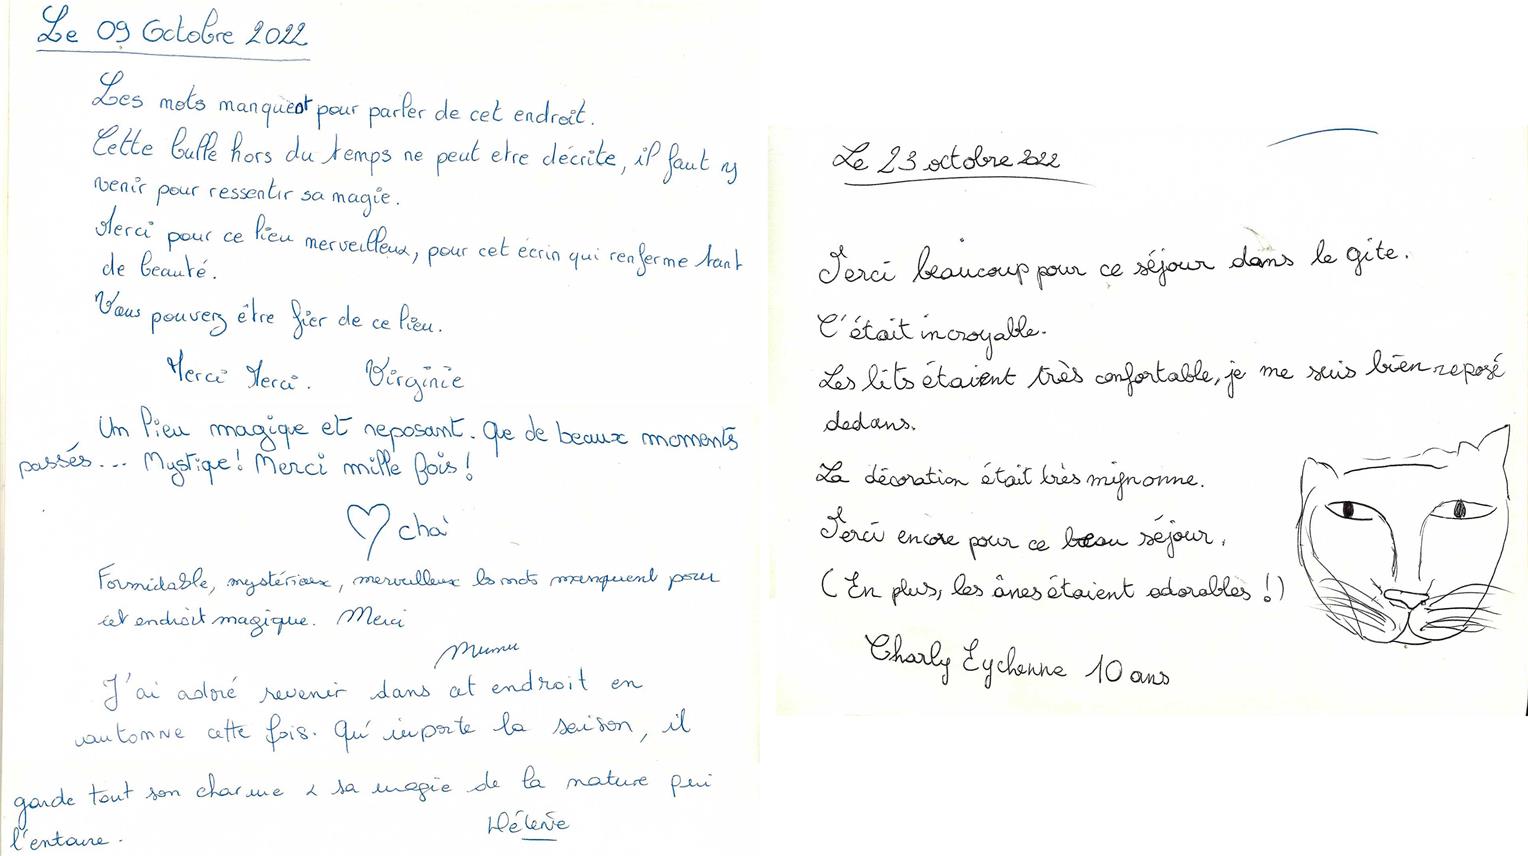 Le 09 Octobre 2022
Les mots manquent pour parler de cet endroit.
Cette bulle hors du temps ne peut etre décrite, il faut y
venir pour ressentir sa magie.
Merci pour ce lieu merveilleux, pour cet écrin qui renferme tant
de beauté.
Vous pouvez être fier de ce lieu.
Merci Merci. Virginie
Un lieu magique et reposant. Que de beaux moments
passés... Mystique! Merci mille fois!
cha
Formidable, mystérieux, merveilleux les mots manquent pour
cet endroit magique. Merci
Mumu
J'ai adoré revenir dans cet endroit en
automne cette fois. Qu'importe la saison, il
garde tout son charme & sa magie de la nature qui
l'entoure.
Hélène
Le 23 octobre 2022
Merci beaucoup pour ce séjour dans le gite.
C'était incroyable.
Les lits étaient très confortable, je me suis bien reposé
dedans.
La décoration était très mignonne.
Merci encore pour ce beau séjour.
(En plus, les ânes étaient adorables!)
Charly Eychenne 10 ans